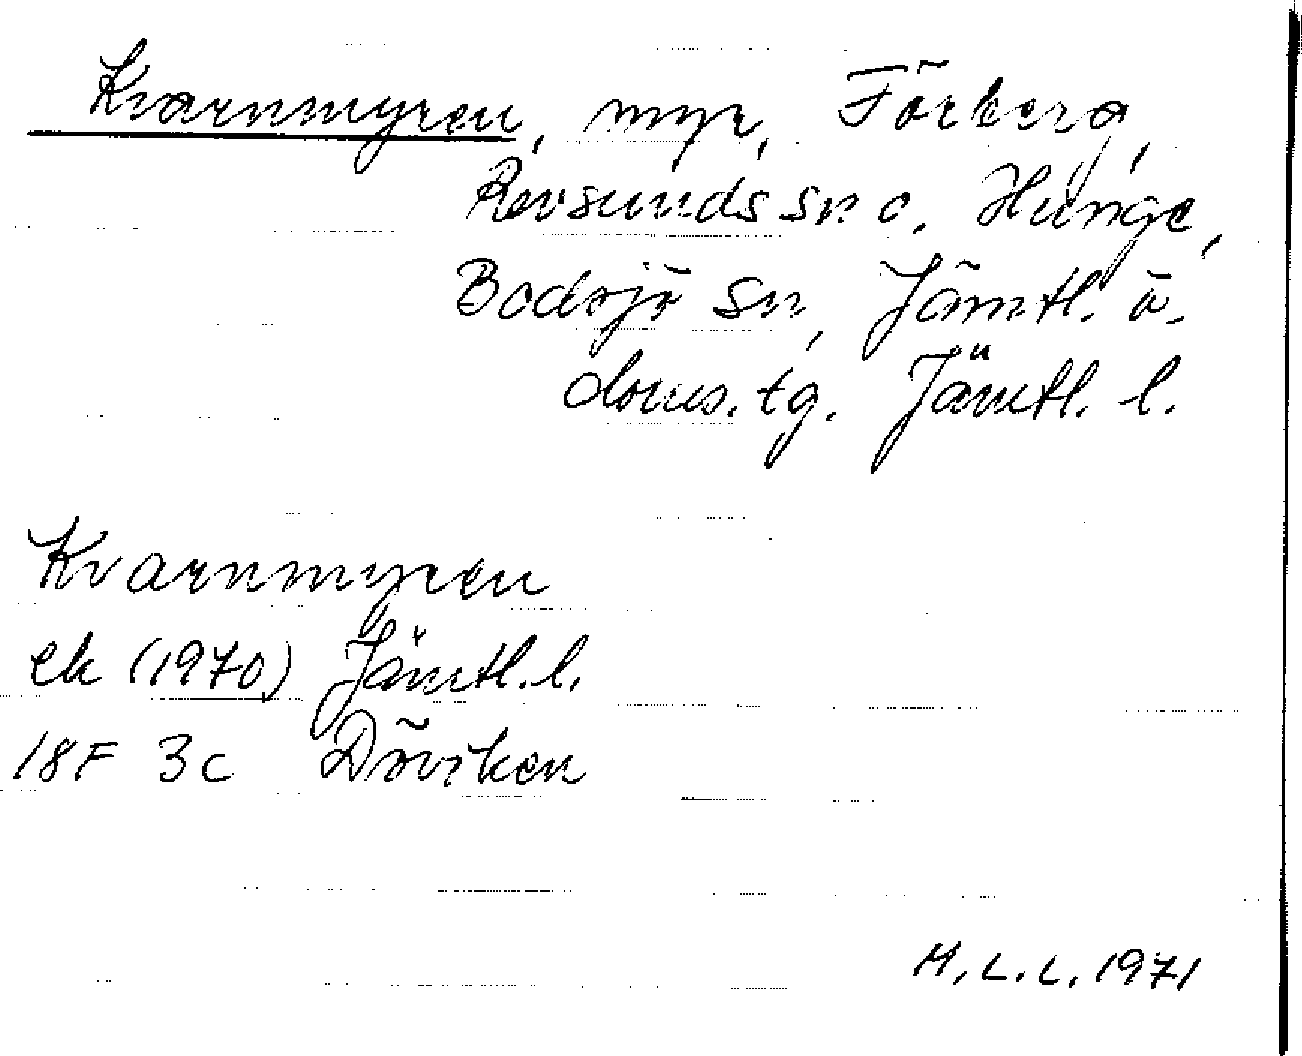 Kvarnmyren, myr, Förberg,
Revsunds sn o. Hunge,
Bodsjö sn, Jämtl. ö.
doms. tg. Jämtl. l.
Kvarnmyren
ek (1970) Jämtl. l.
18F 3c Döviken
H.L.L. 1971